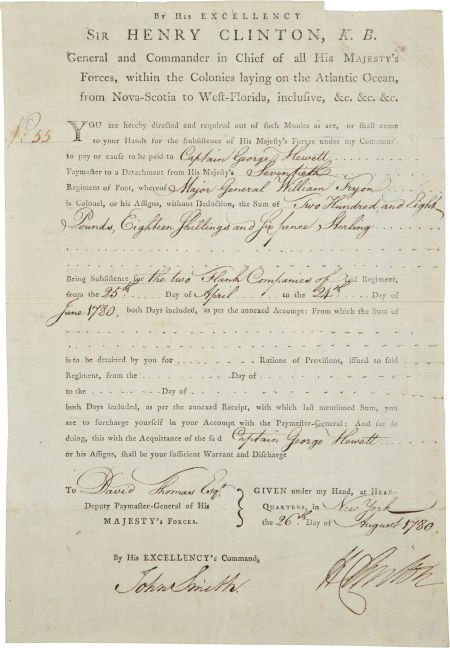 By His EXCELLENCY
Sir HENRY CLINTON, K. B.
General and Commander in Chief of all His MAJESTY's
Forces, within the Colonies laying on the Atlantic Ocean,
from Nova-Scotia to West-Florida, inclusive, &c. &c. &c.
No. 55
YOU are hereby directed and required out of such Monies as are, or shall come
to your Hands for the Subsistence of His Majesty's Forces under my Command
to pay or cause to be paid to Captain George Hewett
Paymaster to a Detachment from His Majesty's Seventieth
Regiment of Foot, whereof Major General William Tryon
is Colonel, or his Assigns, without Deduction, the Sum of Two Hundred and Eight
Pounds, Eighteen Shillings and Six pence Sterling
Being Subsistence for the two Flank Companies of said Regiment,
from the 25th Day of April to the 24th Day of
June 1780. both Days included, as per the annexed Accompt: From which the Sum of
is to be detained by you for Rations of Provisions, issued to said
Regiment, from the Day of
to the Day of
both Days included, as per the annexed Receipt, with which last mentioned Sum, you
are to surcharge yourself in your Accompt with the Paymaster-General: And for so
doing, this with the Acquittance of the said Captain George Hewett
or his Assigns, shall be your sufficient Warrant and Discharge
To David Thomas Esqr.
Deputy Paymaster-General of His
MAJESTY's FORCES.
GIVEN under my Hand, at HEAD-
QUARTERS, in New York
the 26th Day of August 1780.
By His EXCELLENCY's Command,
John Smith.